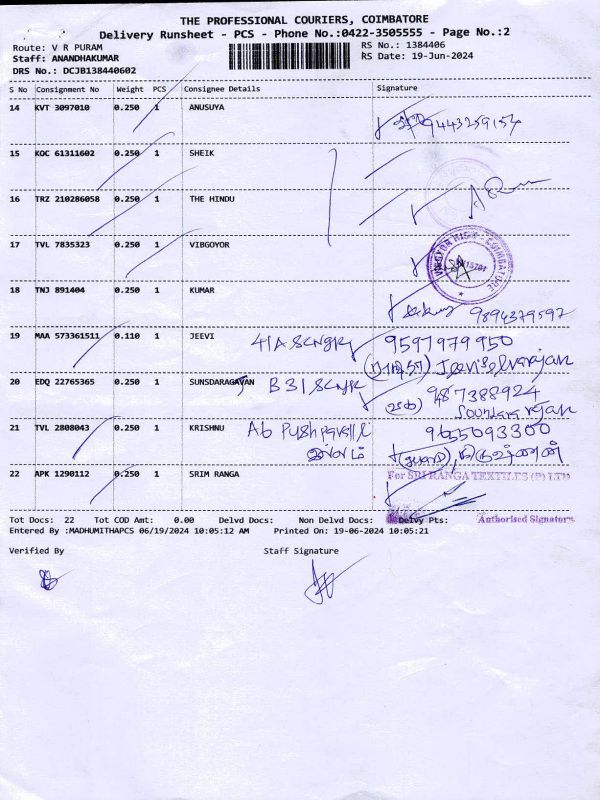 THE PROFESSIONAL COURIERS, COIMBATORE
Delivery Runsheet - PCS - Phone No.:0422-3505555 - Page No.:2
Route: V R PURAM
RS No.: 1384406
Staff: ANANDHAKUMAR
RS Date: 19-Jun-2024
DRS No.: DCJB138440602
S No Consignment No Weight PCS Consignee Details Signature
14 KVT 3097010 0.250 1 ANUSUYA
9443259154
15 KOC 61311602 0.250 1 SHEIK
16 TRZ 210286058 0.250 1 THE HINDU
17 TVL 7835323 0.250 1 VIBGYOR
18 TNJ 891404 0.250 1 KUMAR
9894379597
19 MAA 573361511 0.110 1 JEEVI 41A SCNGR 9597979950
20 EDQ 22765365 0.250 1 SUNSDARAGAVAN B31 SCNGR 987388924
21 TVL 2808043 0.250 1 KRISHNU A6 9655093300
இல்லம்
22 APK 1290112 0.250 1 SRIM RANGA For SRI RANGA TEXTILES (P) LTD
Tot Docs: 22 Tot COD Amt: 0.00 Delvd Docs: Non Delvd Docs: Delvy Pts: Authorised Signatory
Entered By :MADHUMITHAPCS 06/19/2024 10:05:12 AM Printed On: 19-06-2024 10:05:21
Verified By Staff Signature